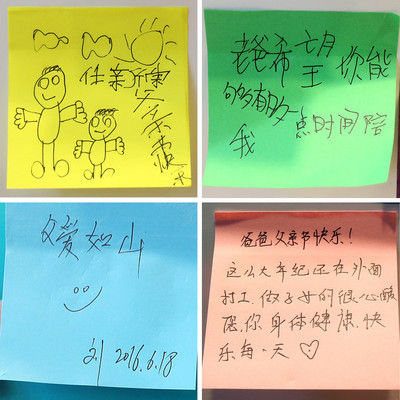 老爸希望你能
够多有多一点时间陪
我
父爱如山
刘 2016.6.18
爸爸父亲节快乐!
这么大年纪还在外面
打工.做子女的很心酸
愿.你身体健康.快
乐每一天♡